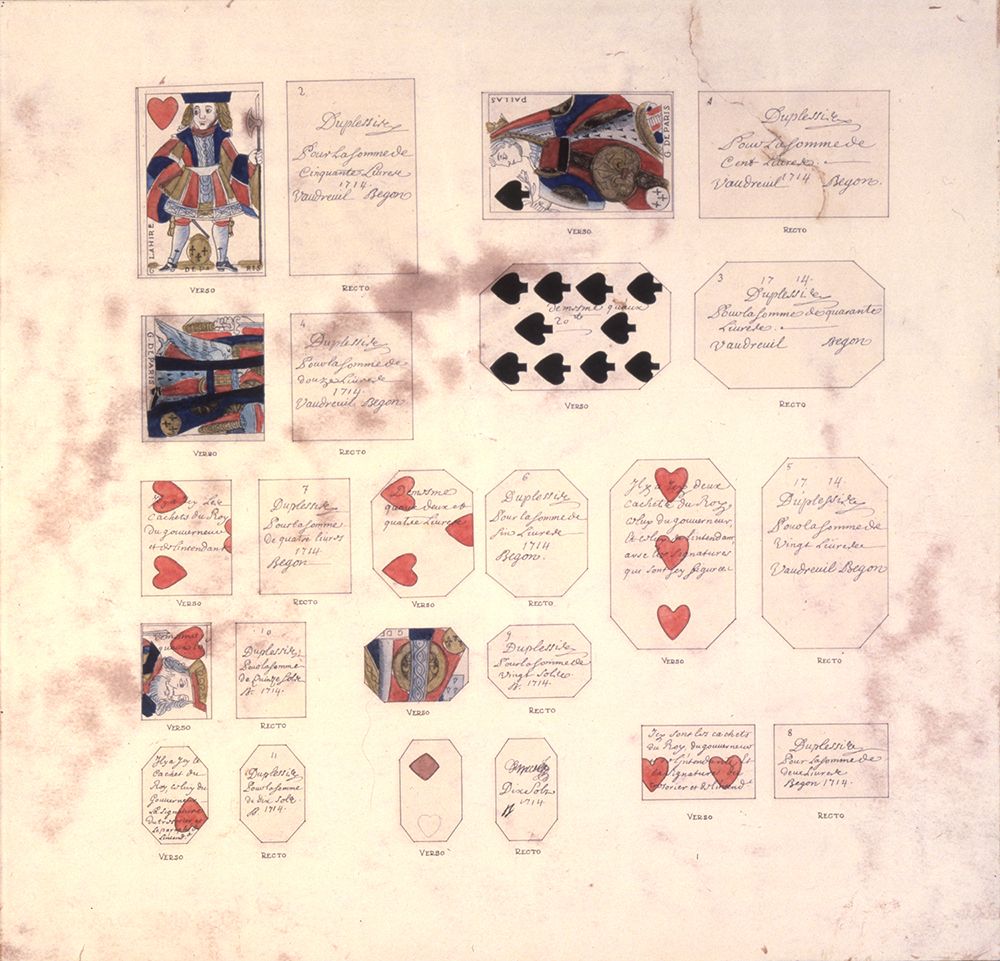 LAHIRE
G DE PARIS
VERSO
2
Duplessis
Pour la somme de
Cinquante Livres
1714
Vaudreuil Begon
RECTO
PALLAS
G. DE PARIS
VERSO
1
Duplessis
Pour la somme de
Cent Livres.
Vaudreuil 1714 Begon.
RECTO
G. DE PARIS
VERSO
4
Duplessis
Pour la somme de
douze Livres
1714
Vaudreuil Begon
RECTO
de mesme quaux
VERSO
3
17 14.
Duplessis
Pour la somme de quarante
Livres.
Vaudreuil Begon.
RECTO
Il y a Icy Les
cachets du Roy
du gouverneur
et de Lintendant
VERSO
7
Duplessis
Pour la somme
de quatre livres
1714
Begon
RECTO
De mesme
quaux deux et
quatre Livres
VERSO
6
Duplessis
Pour la somme de
Six Livres
1714
Begon.
RECTO
Il y a Icy deux
cachets du Roy
celuy du gouverneur,
et celuy de Lintendant
avec les signatures
que sont Icy figurées
VERSO
5
17 14.
Duplessis
Pour la somme de
Vingt Livres
Vaudreuil Begon
RECTO
de mesme
VERSO
10
Duplessis
Pour la somme
de Quinze Sols
B. 1714.
RECTO
VERSO
9
Duplessis
Pour la somme de
Vingt Sols
B. 1714.
RECTO
Il y a Icy le
Cachet du
Roy celuy du
Gouverneur
VERSO
11
Duplessis
Pour la somme
de dix Sols
B. 1714.
RECTO
VERSO
Dix Sols
1714
RECTO
Icy sont les cachets
du Roy du gouverneur
et Lintendant Et
la signature du
VERSO
8
Duplessis
Pour la somme de
deux Livres
Begon 1714.
RECTO